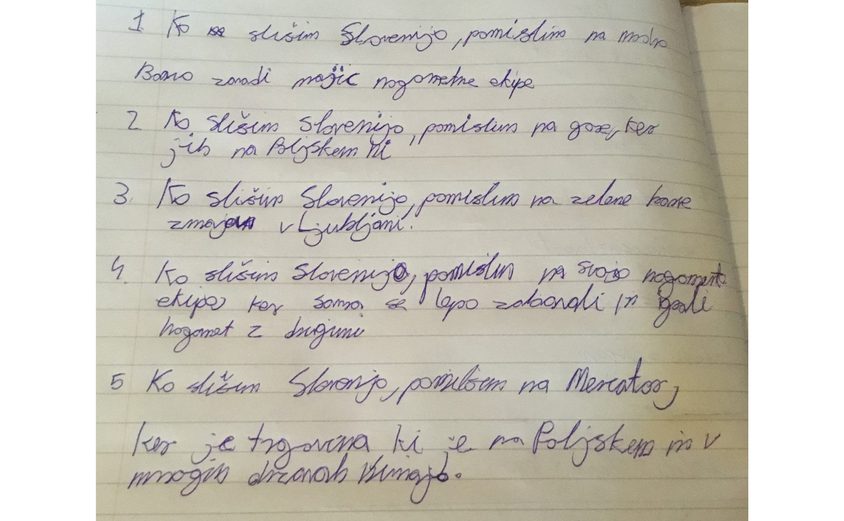 1. Ko slišim Slovenijo, pomislim na modro
Barvo zaradi majic nogometne ekipe
2 Ko slišim Slovenijo, pomislim na gore, ker
jih na Poljskem ni
3. Ko slišim Slovenijo, pomislim na zelene barve
zmajev v Ljubljani.
4. Ko slišim Slovenijo, pomislim na svojo nogometno
ekipo ker smo se lepo zabavali in igrali
nogomet z drugimi
5 Ko slišim Slovenijo, pomislim na Mercator,
ker je trgovina ki je na Poljskem in v
mnogih državah nimajo.